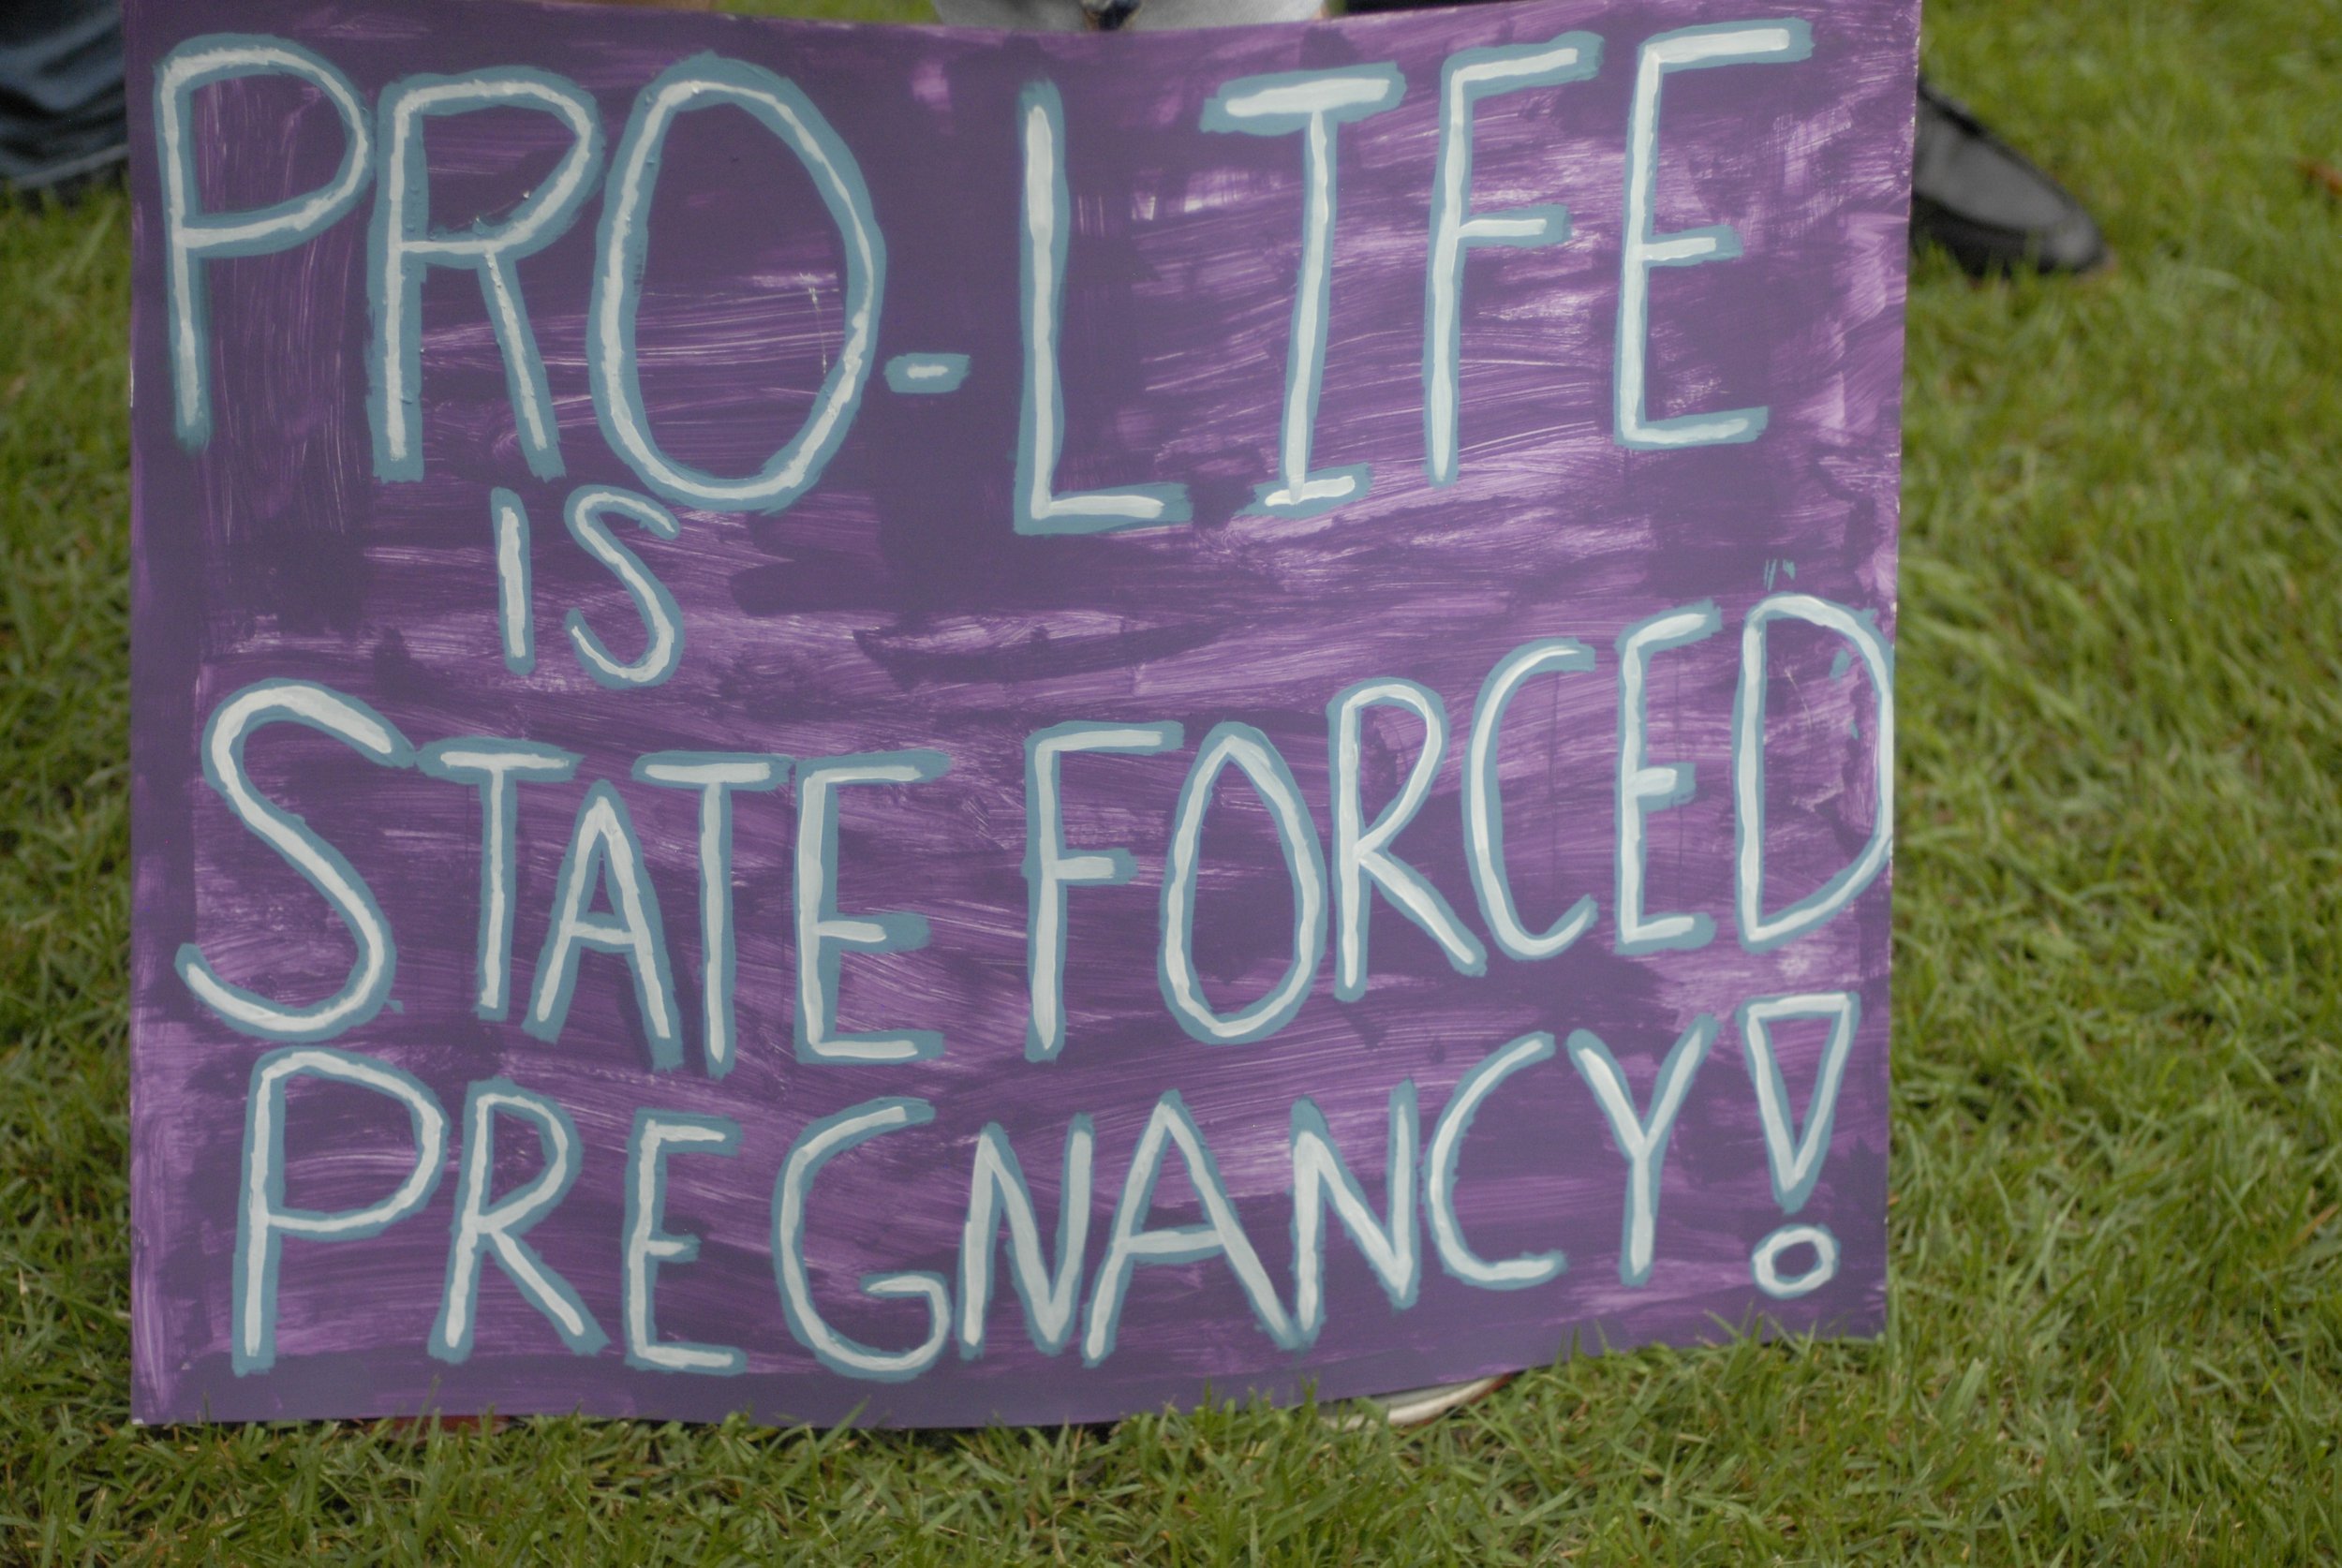 PRO-LIFE
IS
STATE FORCED
PREGNANCY!